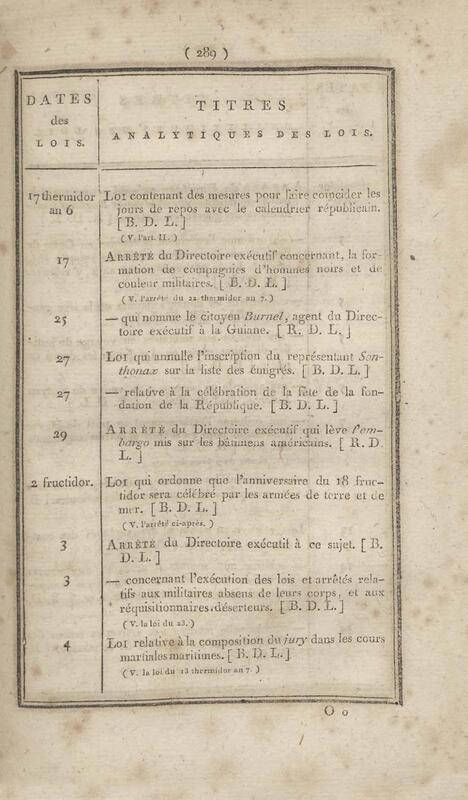 ( 289 )
DATES
des
LOIS.
TITRES
ANALYTIQUES DES LOIS.
17 thermidor
an 6
LOI contenant des mesures pour faire coïncider les
jours de repos avec le calendrier républicain.
[ B. D. L. ]
( V. l'art. II. )
17
ARRÊTÉ du Directoire exécutif concernant, la for-
mation de compagnies d'hommes noirs et de
couleur militaires. [ B. D. L. ]
( V. l'arrêté du 22 thermidor an 7. )
25
— qui nomme le citoyen Burnel, agent du Direc-
toire exécutif à la Guiane. [ R. D. L. ]
27
LOI qui annulle l'inscription du représentant Son-
thonax sur la liste des émigrés. [ B. D. L. ]
27
— relative à la célébration de la fête de la fon-
dation de la République. [ B. D. L. ]
29
ARRÊTÉ du Directoire exécutif qui lève l'em-
bargo mis sur les bâtimens américains. [ R. D.
L. ]
2 fructidor.
LOI qui ordonne que l'anniversaire du 18 fruc-
tidor sera célébré par les armées de terre et de
mer. [ B. D. L. ]
( V. l'arrêté ci-après. )
3
ARRÊTÉ du Directoire exécutif à ce sujet. [ B.
D. L. ]
3
— concernant l'exécution des lois et arrêtés rela-
tifs aux militaires absens de leurs corps, et aux
réquisitionnaires déserteurs. [ B. D. L. ]
( V. la loi du 23. )
4
LOI relative à la composition du jury dans les cours
martiales maritimes. [ B. D. L. ]
( V. la loi du 13 thermidor an 7. )
O o